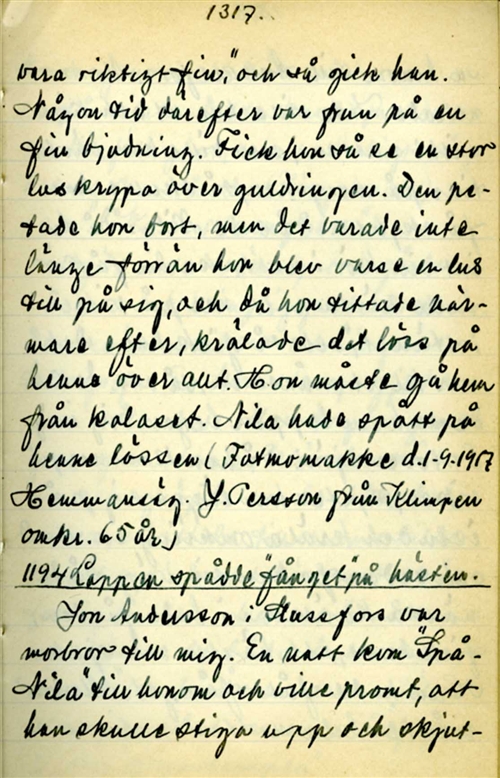 1317.
vara riktigt fin," och så gick han.
Någon tid därefter var frun på en
fin bjudning. Fick hon så se en stor
lus krypa över guldringen. Den pe-
tade hon bort, men det varade inte
länge förrän hon blev varse en lus
till på sig, och då hon tittade när-
mare efter, krälade det löss på
henne över allt. Hon måste gå hem
från kalaset. Nila hade spått på
henne lössen (Fatmomakke d. 1-9-1917
Hemmansäg. J. Persson från Klimpen
omkr. 65 år)
1194 Lappen spådde "fånget" på hästen.
Jon Andersson i Slussfors var
morbror till mig. En natt kom "Spå-
Nila" till honom och ville promt, att
han skulle stiga upp och skjut-